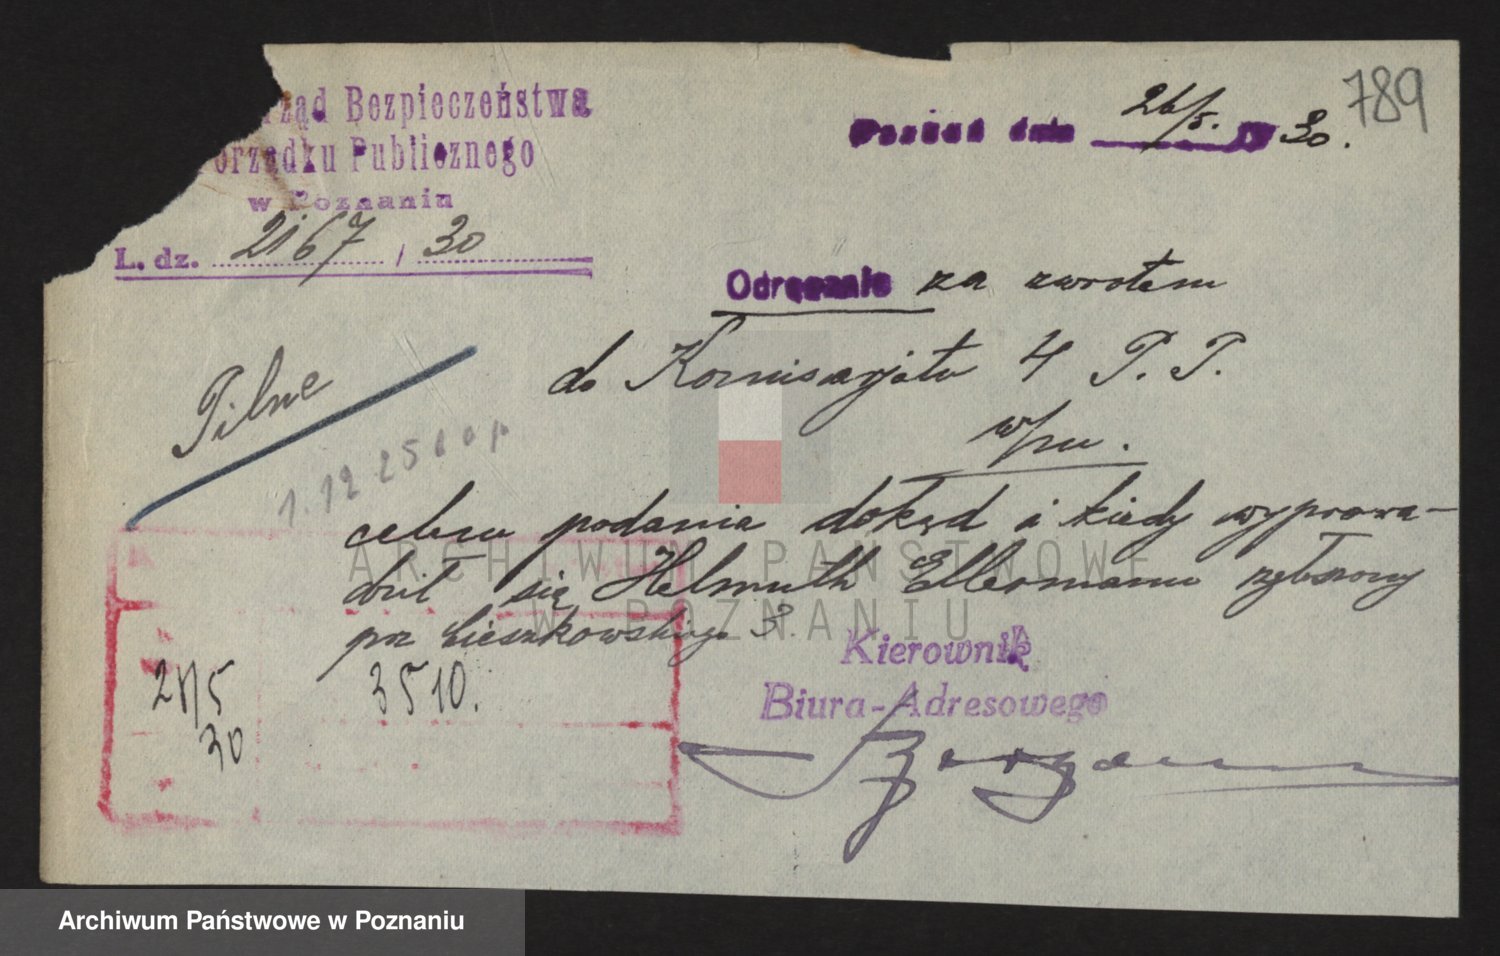 rząd Bezpieczeństwa
orządku Publicznego
w Poznaniu
L. dz. 2167 / 30
Poznań dnia 26/5. 19 30.
789
Odręcznie za zwrotem
do Komisarjatu 4 P. P.
w/m.
Pilne
celem podania dokąd i kiedy wyprowa-
dził się Helmuth Ellermann
prz Cieszkowskiego 3.
Kierownik
Biura-Adresowego
27/5
30
3510.
ARCHIWUM PAŃSTWOWE
W POZNANIU
Archiwum Państwowe w Poznaniu